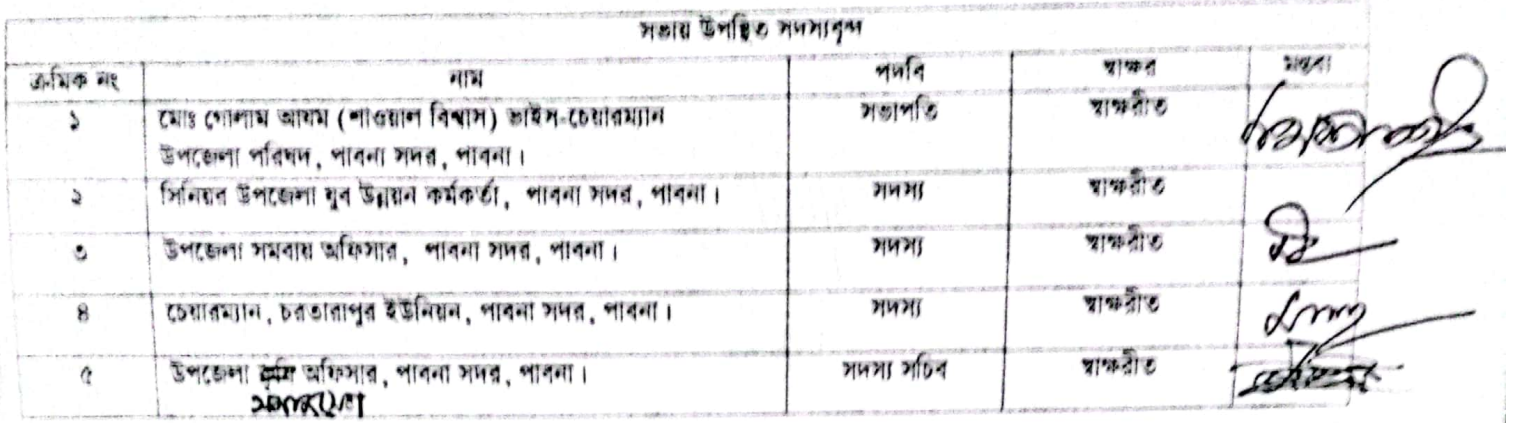 সভায় উপস্থিত সদস্যবৃন্দ
ক্রমিক নং নাম পদবি স্বাক্ষর মন্তব্য
১ মোঃ গোলাম আযম (শাওয়াল বিশ্বাস) ভাইস-চেয়ারম্যান সভাপতি স্বাক্ষরীত
উপজেলা পরিষদ, পাবনা সদর, পাবনা।
২ সিনিয়র উপজেলা যুব উন্নয়ন কর্মকর্তা, পাবনা সদর, পাবনা। সদস্য স্বাক্ষরীত
৩ উপজেলা সমবায় অফিসার, পাবনা সদর, পাবনা। সদস্য স্বাক্ষরীত
৪ চেয়ারম্যান, চরতারাপুর ইউনিয়ন, পাবনা সদর, পাবনা। সদস্য স্বাক্ষরীত
৫ উপজেলা অফিসার, পাবনা সদর, পাবনা। সদস্য সচিব স্বাক্ষরীত